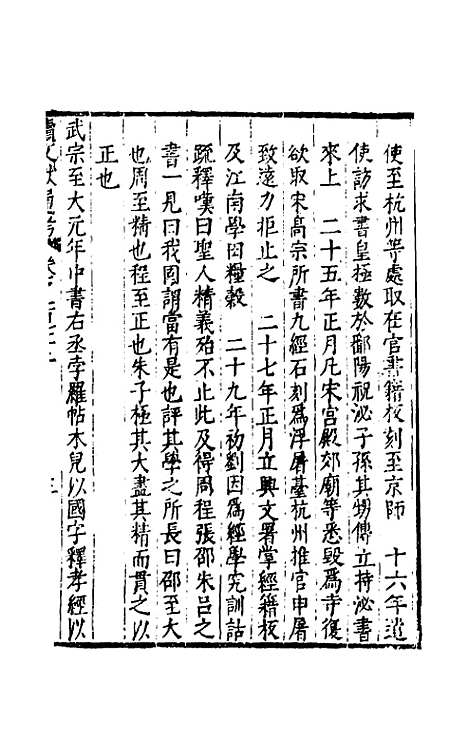 使至杭州等處取在官書籍板刻至京師 十六年遣
使訪求書皇極數於鄱陽祝泌子孫其甥傅立持泌書
來上 二十五年正月凡宋宮殿郊廟等悉毀爲寺復
欲取宋高宗所書九經石刻爲浮屠臺杭州推官申屠
致遠力拒止之 二十七年正月立興文署掌經籍板
及江南學田糧穀 二十九年初劉因爲經學究訓詁
疏釋嘆曰聖人精義殆不止此及得周程張邵朱呂之
書一見曰我固謂當有是也評其學之所長曰邵至大
也周至精也程至正也朱子極其大盡其精而貫之以
正也
武宗至大元年中書右丞孛羅帖木兒以國字釋孝經以
續文獻通考 卷